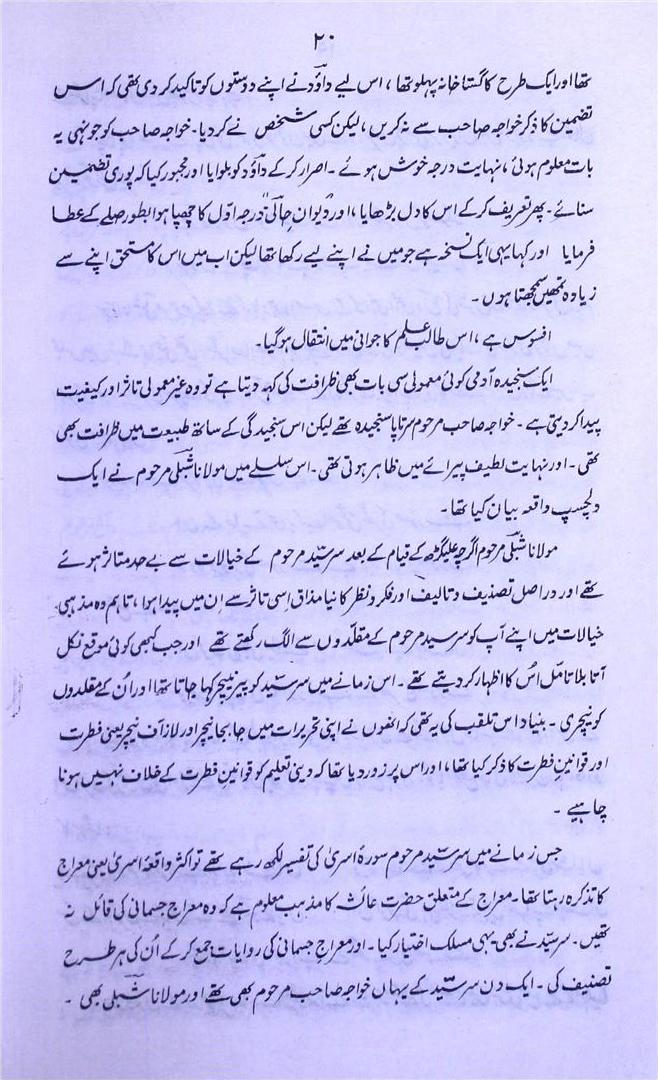 ۲۰
تھا اور ایک طرح کا گستاخانہ پہلو تھا، اس لیے داؤد نے اپنے دوستوں کو تاکید کر دی تھی کہ اس
تضمین کا ذکر خواجہ صاحب سے نہ کریں، لیکن کسی شخص نے کر دیا۔ خواجہ صاحب کو جونہی یہ
بات معلوم ہوئی، نہایت درجہ خوش ہوئے۔ اصرار کر کے داؤد کو بلوایا اور مجبور کیا کہ پوری تضمین
سنائے۔ پھر تعریف کر کے اس کا دل بڑھایا، اور "دیوان حالی" درجہ اوّل کا چھپا ہوا بطور صلے کے عطا
فرمایا اور کہا یہی ایک نسخہ ہے جو میں نے اپنے لیے رکھا تھا لیکن اب میں اس کا مستحق اپنے سے
زیادہ تمھیں سمجھتا ہوں۔
افسوس ہے، اس طالب علم کا جوانی میں انتقال ہو گیا۔
ایک سنجیدہ آدمی کوئی معمولی سی بات بھی ظرافت کی کہہ دیتا ہے تو وہ غیر معمولی تاثر اور کیفیت
پیدا کر دیتی ہے۔ خواجہ صاحب مرحوم سرتاپا سنجیدہ تھے لیکن اس سنجیدگی کے ساتھ طبیعت میں ظرافت بھی
تھی۔ اور نہایت لطیف پیرائے میں ظاہر ہوتی تھی۔ اس سلسلے میں مولانا شبلی مرحوم نے ایک
دلچسپ واقعہ بیان کیا تھا۔
مولانا شبلی مرحوم اگرچہ علیگڑھ کے قیام کے بعد سرسیّد مرحوم کے خیالات سے بے حد متاثر ہوئے
تھے اور دراصل تصنیف و تالیف اور فکر و نظر کا نیا مذاق اسی تاثر سے ان میں پیدا ہوا، تاہم وہ مذہبی
خیالات میں اپنے آپ کو سرسید مرحوم کے مقلّدوں سے الگ رکھتے تھے اور جب کبھی کوئی موقع نکل
آتا بلا تامل اُس کا اظہار کر دیتے تھے۔ اس زمانے میں سرسیّد کو پیر نیچر کہا جاتا تھا اور اُن کے مقلدوں
کو نیچری۔ بنیاد اس تلقب کی یہ تھی کہ انھوں نے اپنی تحریرات میں جا بجا نیچر اور لاز آف نیچر یعنی فطرت
اور قوانینِ فطرت کا ذکر کیا تھا، اور اس پر زور دیا تھا کہ دینی تعلیم کو قوانینِ فطرت کے خلاف نہیں ہونا
چاہیے۔
جس زمانے میں سرسیّد مرحوم سورۂ اسریٰ کی تفسیر لکھ رہے تھے تو اکثر واقعۂ اسریٰ یعنی معراج
کا تذکرہ رہتا تھا۔ معراج کے متعلق حضرت عائشہ کا مذہب معلوم ہے کہ وہ معراج جسمانی کی قائل نہ
تھیں۔ سرسیّد نے بھی یہی مسلک اختیار کیا۔ اور معراجِ جسمانی کی روایات جمع کر کے اُن کی ہر طرح
تصنیف کی۔ ایک دن سرسیّد کے یہاں خواجہ صاحب مرحوم بھی تھے اور مولانا شبلی بھی۔